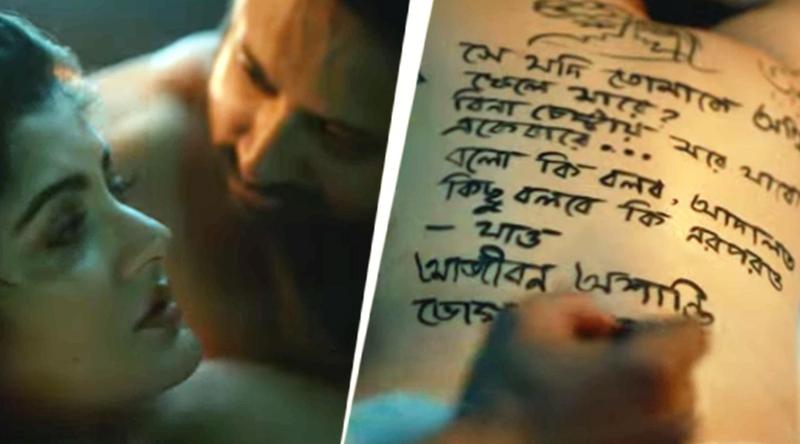 সে যদি তোমাকে
ফেলে মারে?
বিনা চেষ্টায় মরে যাবো
একেবারে...
বলো কি বলব, আদালত
কিছু বলবে কি এরপরও
- যাও
আজীবন অশান্তি
ভোগ